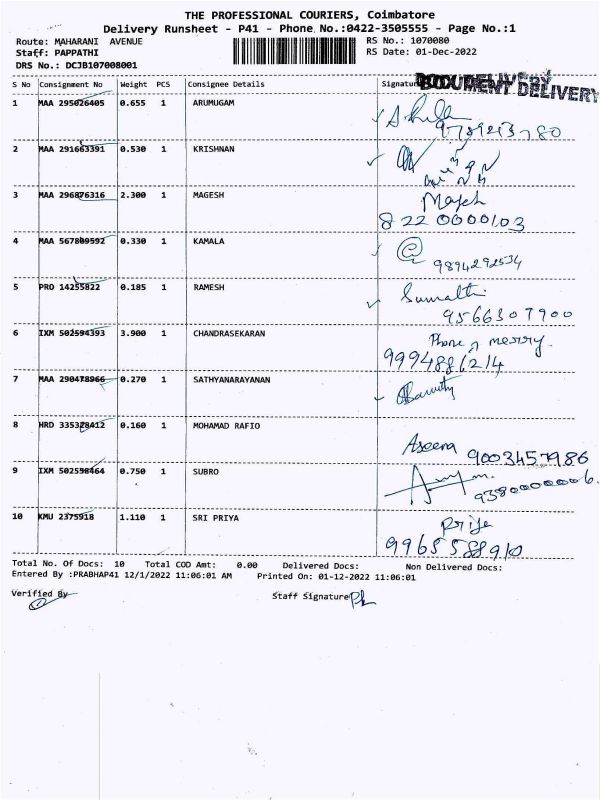 THE PROFESSIONAL COURIERS, Coimbatore
Delivery Runsheet - P41 - Phone No.:0422-3505555 - Page No.:1
Route: MAHARANI AVENUE RS No.: 1070080
Staff: PAPPATHI RS Date: 01-Dec-2022
DRS No.: DCJB107008001
DOCUMENT DELIVERY
S No Consignment No Weight PCS Consignee Details Signature
1 MAA 295026405 0.655 1 ARUMUGAM
2 MAA 291663391 0.530 1 KRISHNAN
3 MAA 296876316 2.300 1 MAGESH Magesh
8220000103
4 MAA 567809592 0.330 1 KAMALA
9894292534
5 PRO 14255822 0.185 1 RAMESH Sumathi
9566307900
6 IXM 502594393 3.900 1 CHANDRASEKARAN Phone
9994886214
7 MAA 290478966 0.270 1 SATHYANARAYANAN
8 HRD 335328412 0.160 1 MOHAMAD RAFIO
Aseena 9003457986
9 IXM 502598464 0.750 1 SUBRO
9380000006
10 KMU 2375918 1.110 1 SRI PRIYA Priya
9965588910
Total No. Of Docs: 10 Total COD Amt: 0.00 Delivered Docs: Non Delivered Docs:
Entered By :PRABHAP41 12/1/2022 11:06:01 AM Printed On: 01-12-2022 11:06:01
Verified By Staff Signature